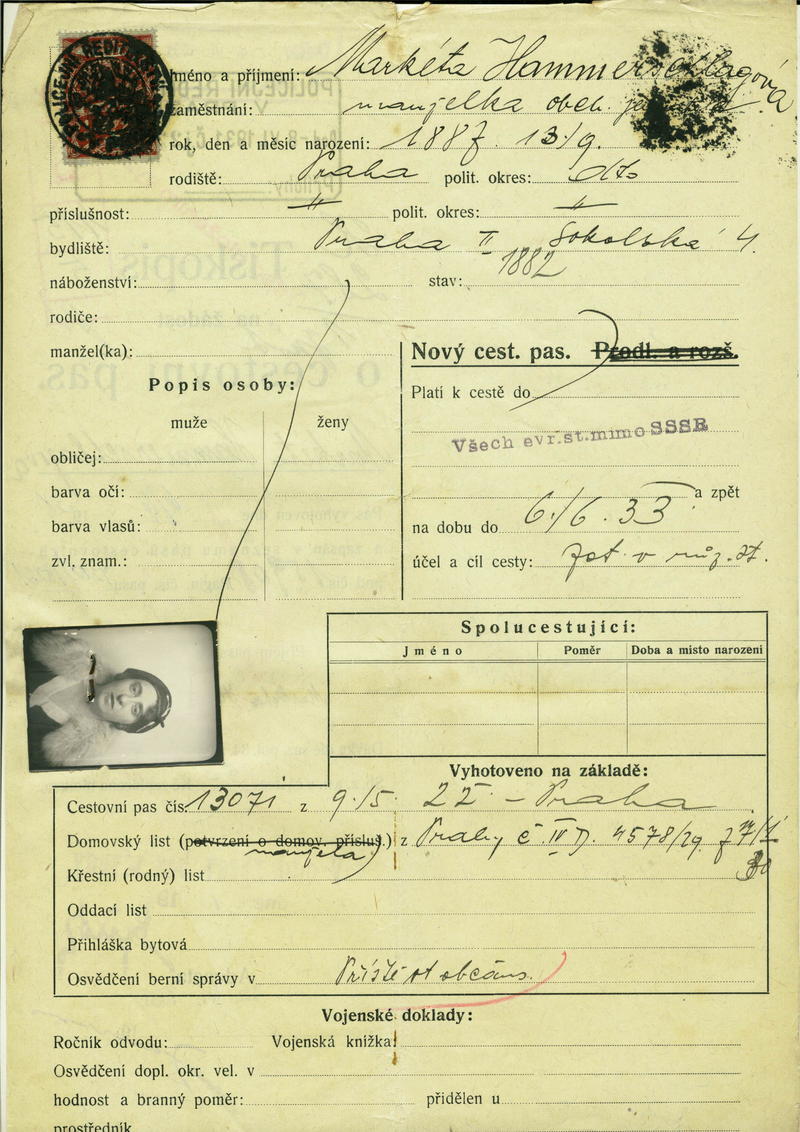 Jméno a příjmení: Markéta Hammerschlagová
zaměstnání: manželka obch.
rok, den a měsíc narození: 1887. 13./9.
rodiště: Praha polit. okres: dto
příslušnost: " polit. okres: "
bydliště: Praha II Sokolská 4.
náboženství: stav: 1882
rodiče:
manžel(ka):
Nový cest. pas. Prodl. a rozš.
Popis osoby:
Platí k cestě do
muže ženy
Všech evr.st.mimo SSSR
obličej:
barva očí:
a zpět
barva vlasů:
na dobu do 6./6. 33
zvl. znam.:
účel a cíl cesty: Zot. v růz. st.
Spolucestující:
Jméno Poměr Doba a místo narození
Vyhotoveno na základě:
Cestovní pas čís. 13071 z 9./5. 22 - Praha
Domovský list (potvrzení o domov. přísluš.) z Prahy č. IV D. 4578/29. z 7/1
manžela) 30
Křestní (rodný) list
Oddací list
Přihláška bytová
Osvědčení berní správy v Příště st občans.
Vojenské doklady:
Ročník odvodu: Vojenská knížka
Osvědčení dopl. okr. vel. v
hodnost a branný poměr: přidělen u
prostředník